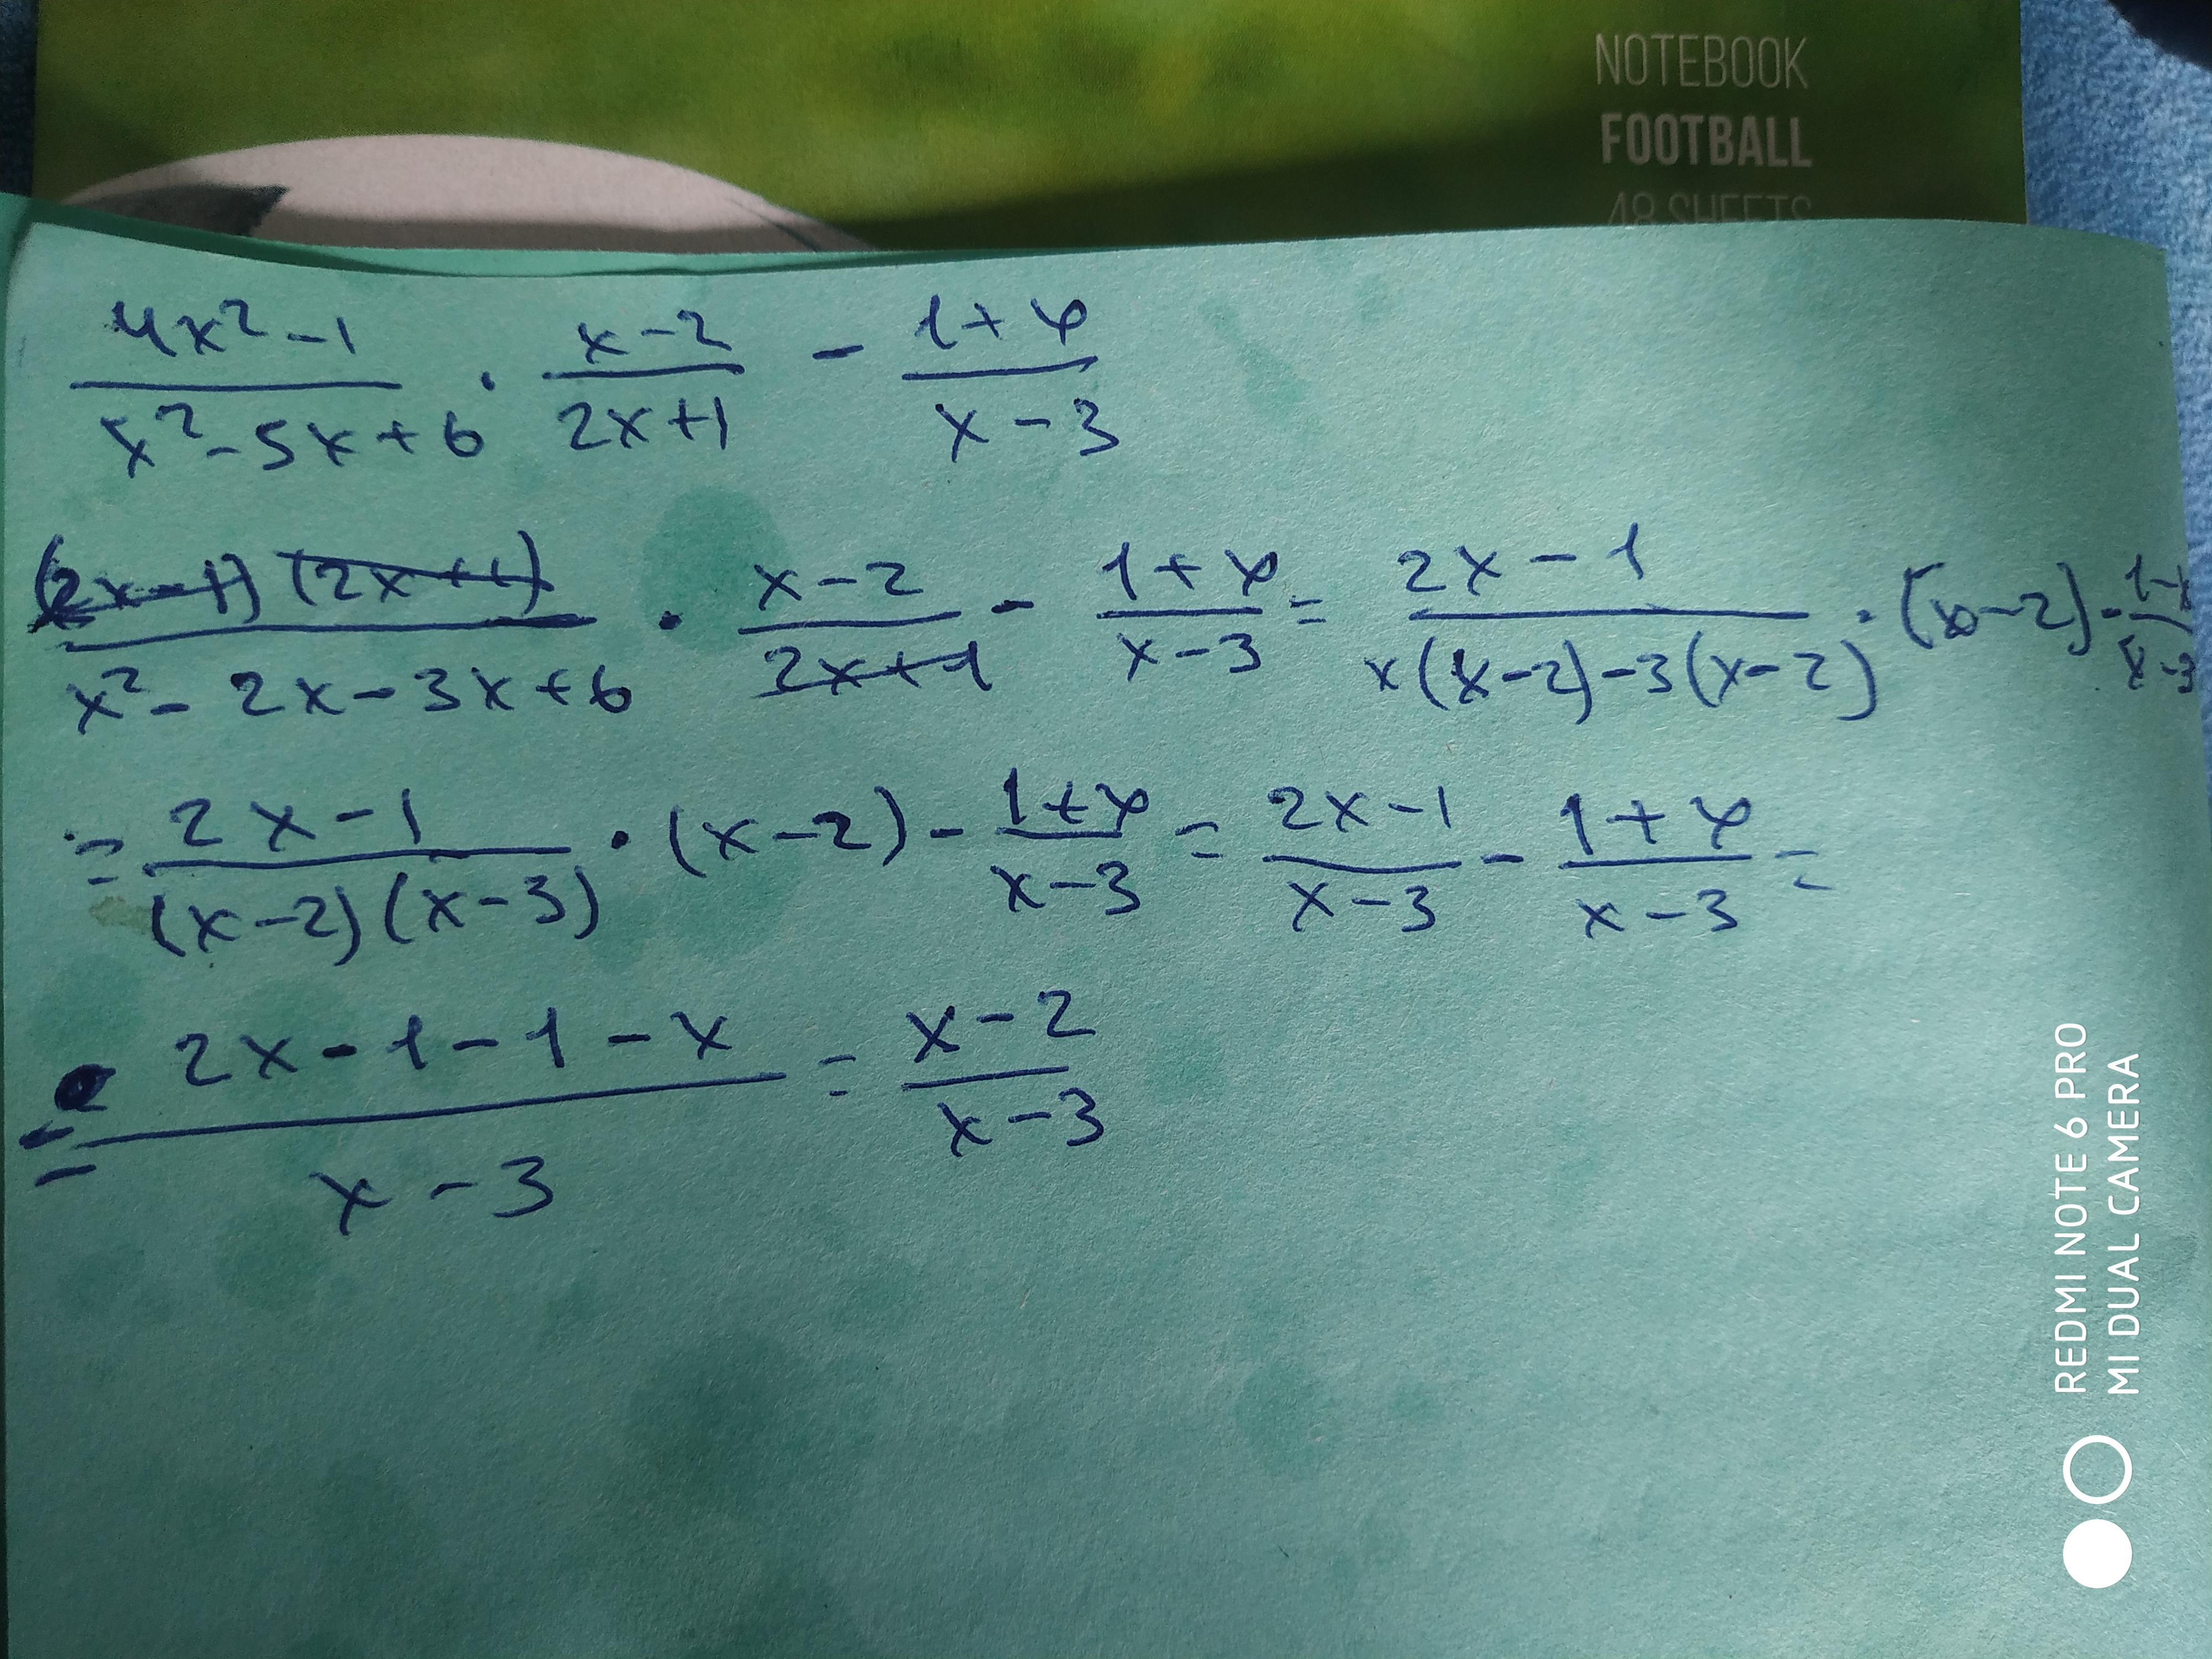 NOTEBOOK
FOOTBALL
48 SHEETS
(4x²-1)/(x²-5x+6) · (x-2)/(2x+1) - (1+x)/(x-3)
((2x-1)(2x+1))/(x²-2x-3x+6) · (x-2)/(2x+1) - (1+x)/(x-3) = (2x-1)/(x(x-2)-3(x-2)) · (x-2) - (1+x)/(x-3)
= (2x-1)/((x-2)(x-3)) · (x-2) - (1+x)/(x-3) = (2x-1)/(x-3) - (1+x)/(x-3) =
= (2x-1-1-x)/(x-3) = (x-2)/(x-3)
REDMI NOTE 6 PRO
MI DUAL CAMERA